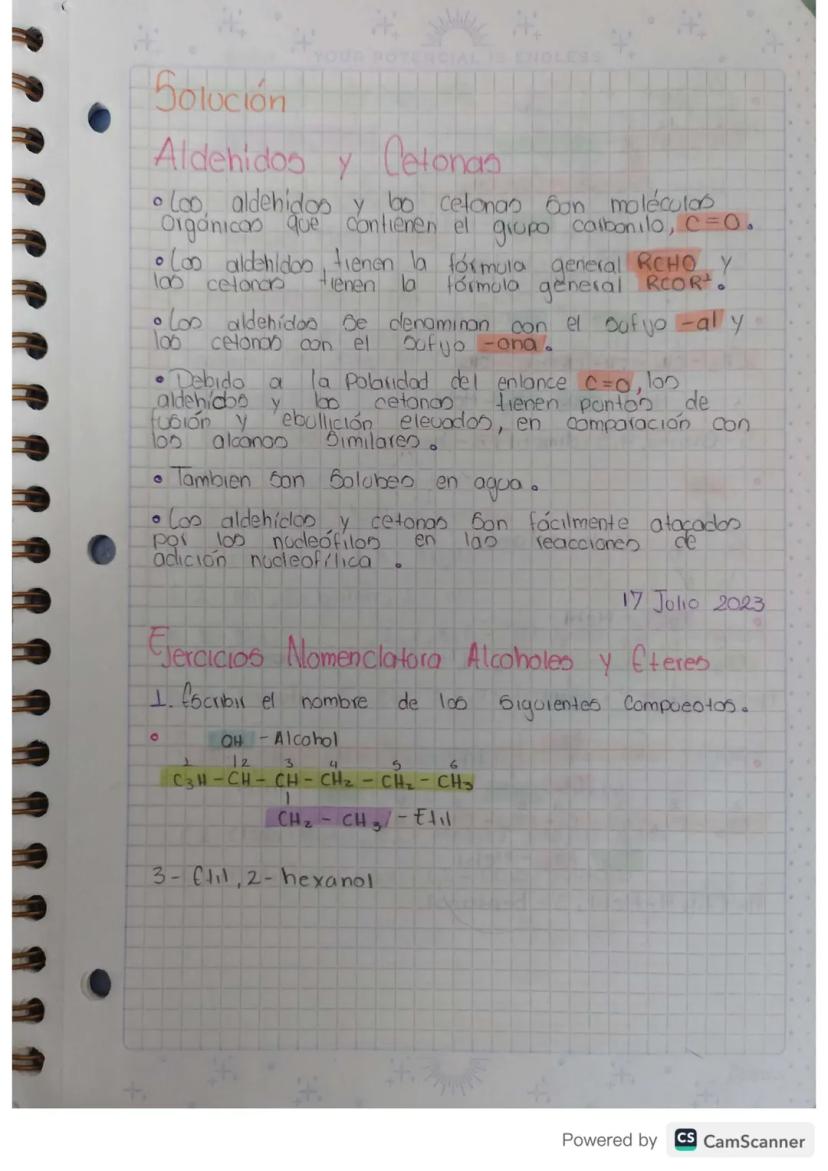 YOUR POTENCIAL IS ENDLESS
Solución
Aldehidos y Cetonas
• Los aldehidos y las cetonas son moléculas
orgánicas que contienen el grupo carbonilo, C=O.
• Los aldehidos tienen la fórmula general RCHO y
las cetonas tienen la fórmula general RCOR¹.
• Los aldehidos se denominan con el sufijo -al y
las cetonas con el sufijo -ona.
• Debido a la Polaridad del enlance C=O, los
aldehidos y las cetonas tienen puntos de
fusión y ebullición elevados, en comparación con
los alcanos similares.
• Tambien son solubes en agua.
• Los aldehidos y cetonas son fácilmente atacados
por los nucleófilos en las reacciones de
adición nucleofílica.
17 Julio 2023
Ejercicios Nomenclatura Alcoholes y Eteres
1. Escribir el nombre de los siguientes compuestos.
• OH - Alcohol
1 |2 3 4 5 6
C3H - CH - CH - CH₂ - CH₂ - CH₃
|
CH₂ - CH₃ - Etil
3 - Etil, 2 - hexanol
Powered by CS CamScanner